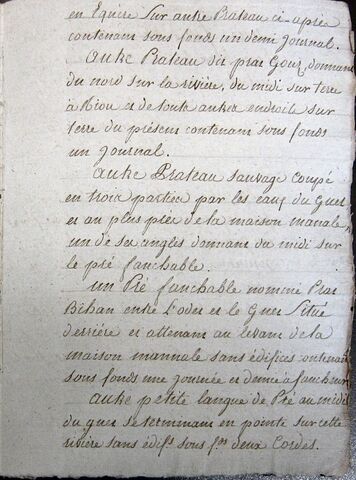 en Equère sur autre Prateau ci-après
contenant sous fonds un demi Journal.
autre Prateau dit prat Gour, donnant
du nord sur la rivière, du midi sur terre
à Riou et de toute autres endroits sur
terre du présent contenant sous fonds
un Journal.
autre Prateau sauvage coupé
en trois parties par les eaux du Guer
et au plus près de la maison manale,
un de ses angles donnant du midi sur
le pré fauchable.
un Pré fauchable nommé Prat
Bihan entre l'oder et le Guer Situé
derrière et attenant au levant de la
maison mannale sans édifices contenant
sous fonds une journée et demie à faucheur
autre petite langue de Pré au midi
du guer se terminant en pointe sur cette
rivière sans édifs sous fds deux Cordes.